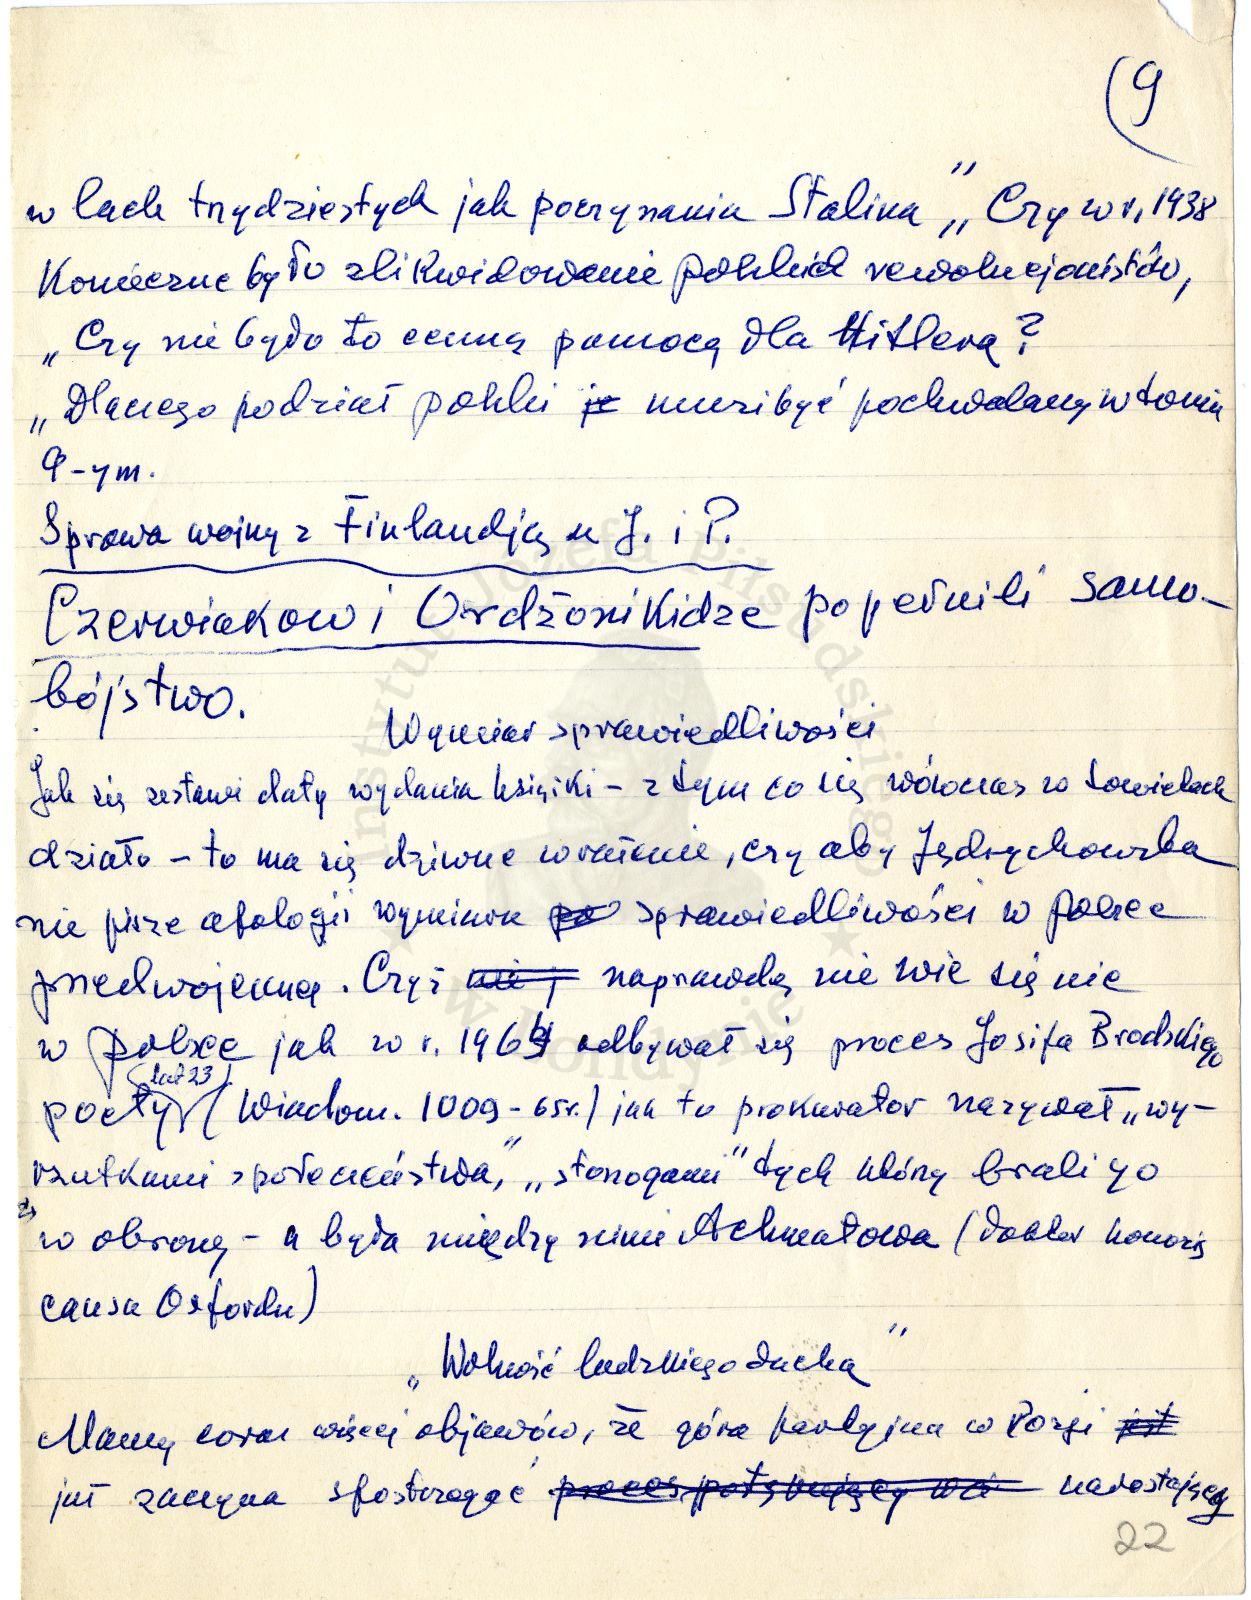 (9
w latach trzydziestych jak poczynania Stalina" „Czy w r. 1938
Konieczne było zlikwidowanie polskich rewolucjonistów,
„Czy nie było to cenną pomocą dla Hitlera?
„Dlaczego podział polski je musi być pochwalany w tomie
9-ym.
Sprawa wojny z Finlandją u J. i P.
Czerwiakow i Ordżonikidze popełnili samo-
bójstwo.
Wymiar sprawiedliwości
Jak się zestawi daty wydania książki - z tym co się wówczas w sowietach
działo - to ma się dziwne wrażenie, czy aby Jędrychowska
nie pisze apologii wymiaru po sprawiedliwości w Polsce
przedwojennej. Czyż nie j naprawdę nie wie się nic
w Polsce jak w r. 1964 odbywał się proces Josifa Brodskiego
(lat 23)
poety (Wiadom. 1009-65r.) jak to prokurator nazywał „wy-
rzutkami społeczeństwa," „stonogami" tych którzy brali go
w obronę - a była między nimi Achmatowa (doktor honoris
causa Oxfordu)
„Wolność ludzkiego ducha"
Mamy coraz więcej objawów, że góra partyjna w Rosji jest
już zaczyna spostrzegać proces potęgujący narastającą
22
Instytut Józefa Piłsudskiego
w Londynie